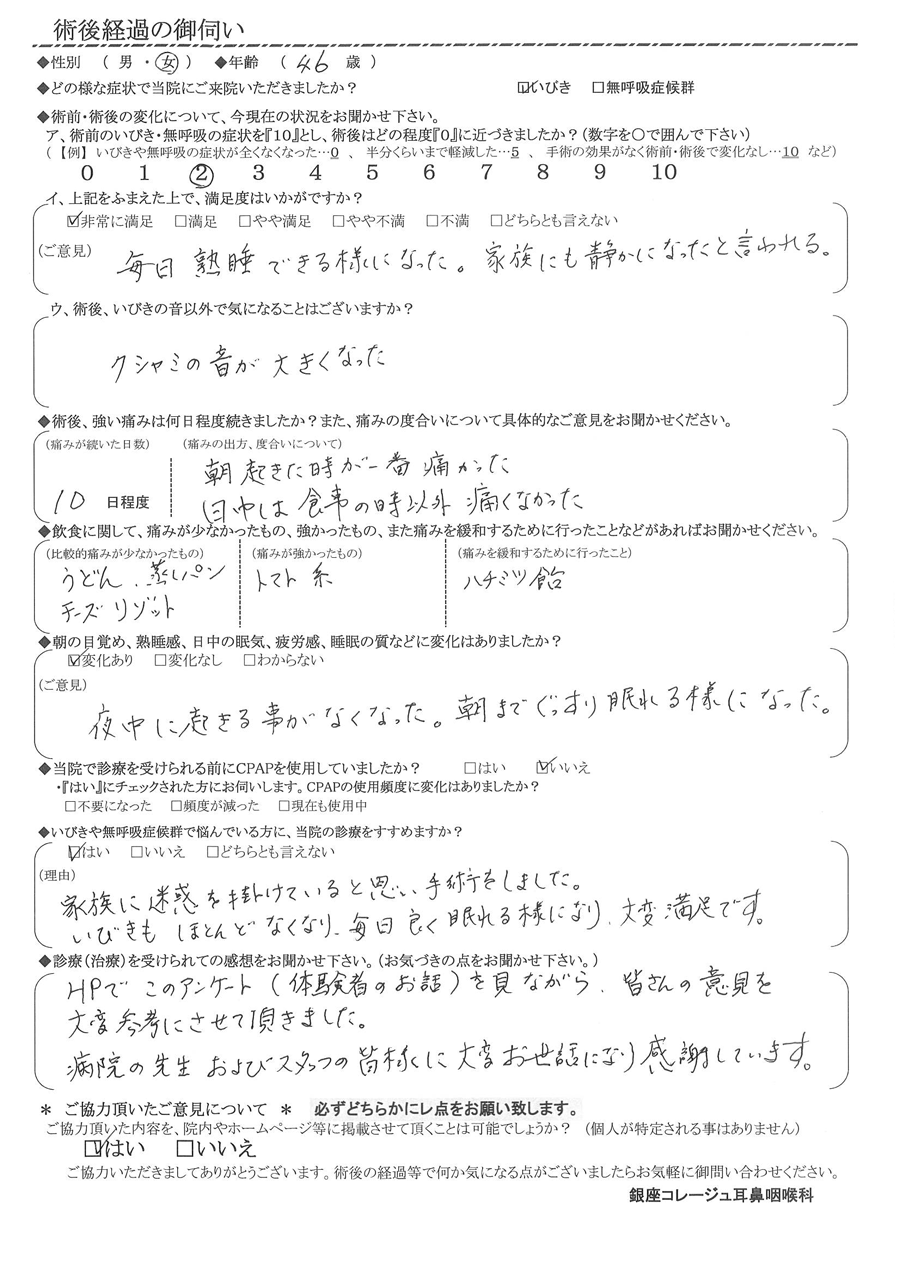 術後経過の御伺い
◆性別 （ 男 ・ 女 ） ◆年齢 （ 46 歳 ）
◆どの様な症状で当院にご来院いただきましたか？ ☑いびき □無呼吸症候群
◆術前・術後の変化について、今現在の状況をお聞かせ下さい。
ア、術前のいびき・無呼吸の症状を『10』とし、術後はどの程度『0』に近づきましたか？（数字を○で囲んで下さい）
（【例】いびきや無呼吸の症状が全くなくなった…0 、 半分くらいまで軽減した…5 、 手術の効果がなく術前・術後で変化なし…10 など）
0 1 2 3 4 5 6 7 8 9 10
イ、上記をふまえた上で、満足度はいかがですか？
☑非常に満足 □満足 □やや満足 □やや不満 □不満 □どちらとも言えない
（ご意見） 毎日 熟睡 できる様になった。 家族にも静かになったと言われる。
ウ、術後、いびきの音以外で気になることはございますか？
クシャミの音が大きくなった
◆術後、強い痛みは何日程度続きましたか？また、痛みの度合いについて具体的なご意見をお聞かせください。
（痛みが続いた日数） （痛みの出方、度合いについて）
朝起きた時が一番痛かった
10 日程度 日中は食事の時以外 痛くなかった
◆飲食に関して、痛みが少なかったもの、強かったもの、また痛みを緩和するために行ったことなどがあればお聞かせください。
（比較的痛みが少なかったもの） （痛みが強かったもの） （痛みを緩和するために行ったこと）
うどん、蒸しパン トマト系 ハチミツ飴
チーズリゾット
◆朝の目覚め、熟睡感、日中の眠気、疲労感、睡眠の質などに変化はありましたか？
☑変化あり □変化なし □わからない
（ご意見）
夜中に起きる事がなくなった。朝までぐっすり眠れる様になった。
◆当院で診療を受けられる前にCPAPを使用していましたか？ □はい ☑いいえ
・『はい』にチェックされた方にお伺いします。CPAPの使用頻度に変化はありましたか？
□不要になった □頻度が減った □現在も使用中
◆いびきや無呼吸症候群で悩んでいる方に、当院の診療をすすめますか？
☑はい □いいえ □どちらとも言えない
（理由）
家族に迷惑を掛けていると思い手術をしました。
いびきも ほとんどなくなり、毎日良く眠れる様になり、大変満足です。
◆診療（治療）を受けられての感想をお聞かせ下さい。（お気づきの点をお聞かせ下さい。）
HPで このアンケート（体験者のお話）を見ながら、皆さんの意見を
大変参考にさせて頂きました。
病院の先生 およびスタッフの皆様に大変お世話になり感謝しています。
＊ ご協力頂いたご意見について ＊ 必ずどちらかにレ点をお願い致します。
ご協力頂いた内容を、院内やホームページ等に掲載させて頂くことは可能でしょうか？ （個人が特定される事はありません）
☑はい □いいえ
ご協力いただきましてありがとうございます。術後の経過等で何か気になる点がございましたらお気軽に御問い合わせください。
銀座コレージュ耳鼻咽喉科